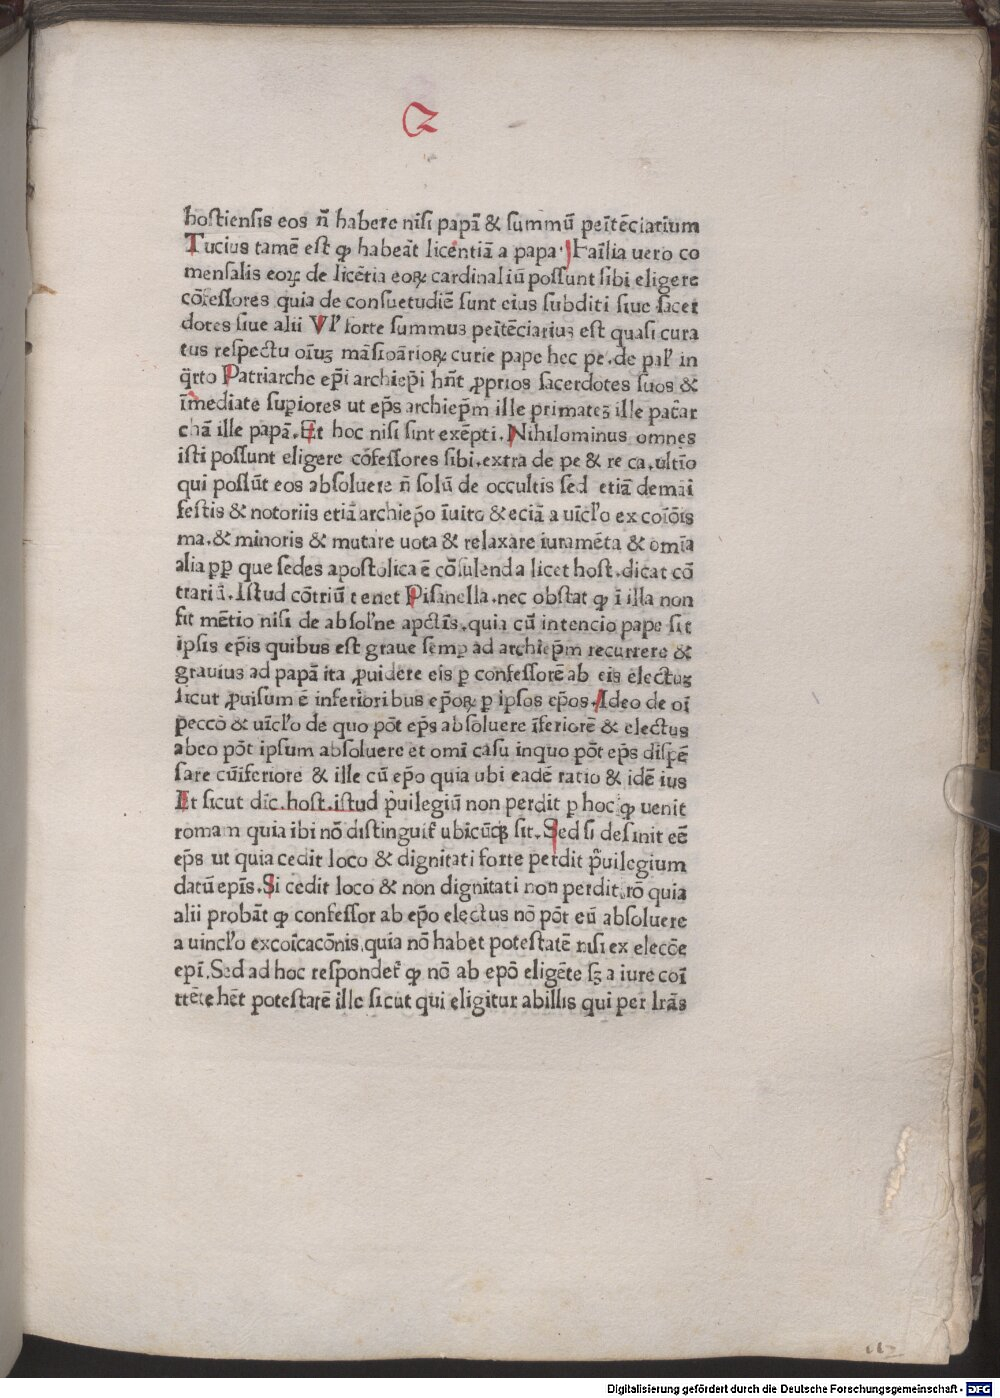 hostiensis eos n̄ habere nisi papā & summū peitēciarium
Tucius tamē est ꝙ habeāt licentiā a papa· Faīlia uero co
mensalis eoꝝ de licētia eoꝝ cardinaliū possunt sibi eligere
cōfessores quia de consuetudiē sunt eius subditi siue sacer
dotes siue alii Vl' forte summus peitēciarius est quasi cura
tus respectu oīuꝫ māsioārioꝝ curie pape hec pe. de pal' in
q̄rto Patriarche ep̄i archiep̄i hn̄t ꝓprios sacerdotes suos &
īmediate supiores ut ep̄s archiep̄m ille primateꝫ ille pat̄ar
chā ille papā. Et hoc nisi sint exēpti. Nihilominus omnes
isti possunt eligere cōfessores sibi. extra de pe & re ca. ultīo
qui possūt eos absoluere n̄ solū de occultis sed etiā demāi
festis & notoriis etiā archiep̄o īuito & eciā a uīcl'o ex coīoīs
ma. & minoris & mutare uota & relaxare iuramēta & omīa
alia ꝑꝑ que sedes apostolica ē cōsulenda licet host. dicat cō
trariū. Istud cōtriū tenet Pisanella. nec obstat ꝙ ī illa non
fit mētio nisi de absol'ne apctīs. quia cū intencio pape sit
ipsis ep̄is quibus est graue semp ad archiep̄m recurrere &
grauius ad papā ita ꝓuidere eis ꝑ confessorē ab eis electuꝫ
sicut ꝓuisum ē inferioribus ep̄oꝝ ꝑ ipsos ep̄os. Ideo de oī
pecco & uīcl'o de quo pōt ep̄s absoluere īferiorē & electus
abeo pōt ipsum absoluere et omī casu inquo pōt ep̄s dispē
sare cūiferiore & ille cū ep̄o quia ubi eadē ratio & idē ius
Et sicut dic. host. istud p̄uilegiū non perdit ꝑ hoc ꝙ uenit
romam quia ibi nō distinguit̄ ubicūqꝫ sit. Sed si desinit eē
ep̄s ut quia cedit loco & dignitati forte perdit p̄uilegium
datū epīs. Si cedit loco & non dignitati non perdit. rō quia
alii probāt ꝙ confessor ab ep̄o electus nō pōt eū absoluere
a uincl'o excoīcacōnis, quia nō habet potestatē nisi ex elecōe
epī. Sed ad hoc respondet̄ ꝙ nō ab epō eligēte sꝫ a iure coī
ttēte hēt potestatē ille sicut qui eligitur abillis qui per lrās
Digitalisierung gefördert durch die Deutsche Forschungsgemeinschaft - DFG